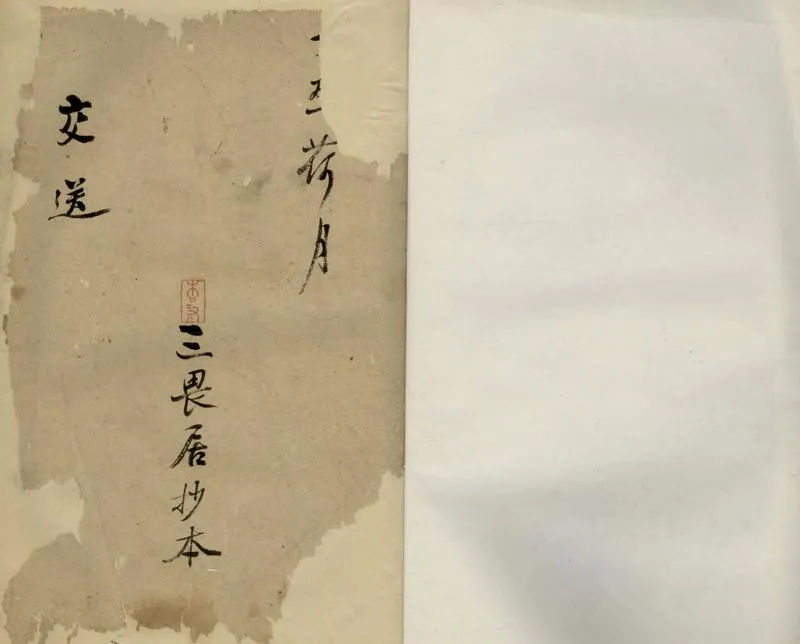 五荷月
三畏居抄本
交送